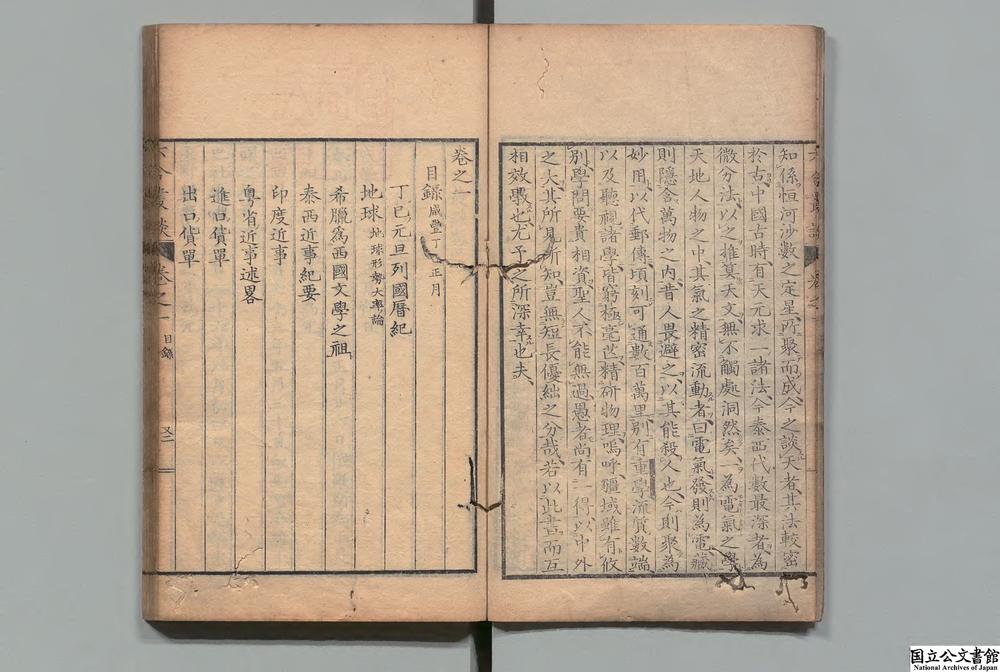 知係恒河沙數之定星所聚而成今之談天者其法較密
於古中國古時有天元求一諸法今泰西代數最深者為
微分法以之推算天文無不觸處洞然矣一為電氣之學
天地人物之中其氣之精密流動者曰電氣發則為電藏
則隱含萬物之內昔人畏避之以其能殺人也今則聚為
妙用以代郵傳頃刻可通數百萬里別有重學流質數端
以及聽視諸學皆窮極毫芒精研物理嗚呼疆域雖有攸
別學問要貴相資聖人不能無過愚者尚有一得以中外
之大其所見所知豈無短長優絀之分哉若以此書而互
相效覈也尤予之所深幸也夫
卷之一
目錄 咸豐丁 正月
丁巳元旦列國曆紀
地球 地球形勢大率論
希臘為西國文學之祖
泰西近事紀要
印度近事
粵省近事述畧
進口貨單
出口貨單
六合叢談 卷之一 目錄
国立公文書館
National Archives of Japan